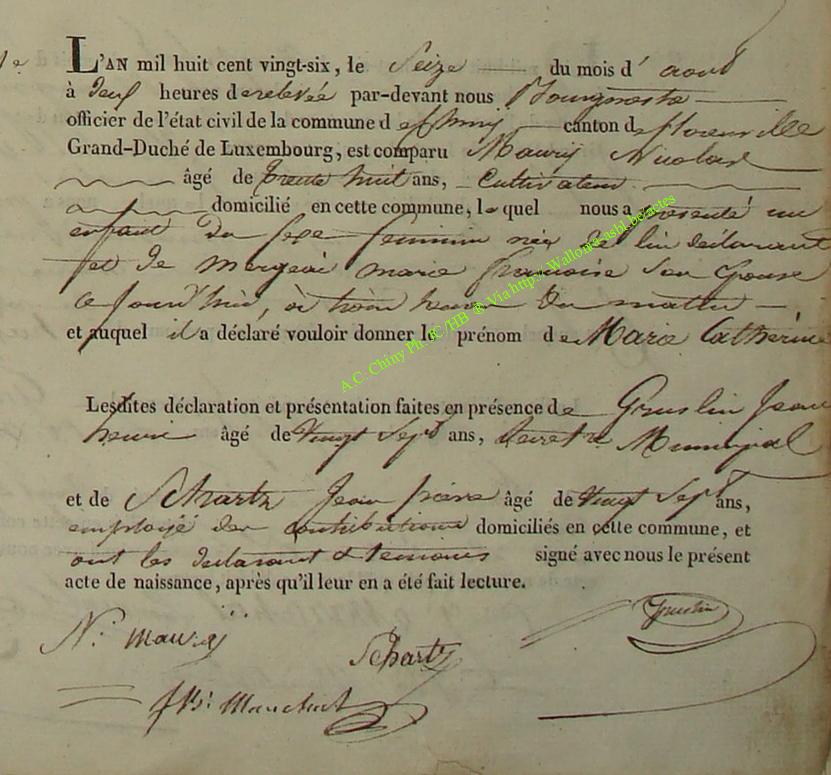 L'AN mil huit cent vingt-six, le Seize du mois d' aout
à deux heures de relevée par-devant nous Bourgmestre
officier de l'état civil de la commune d canton de florenville
Grand-Duché de Luxembourg, est comparu Maury Nicolas
âgé de trente huit ans, Cultivateur
domicilié en cette commune, lequel nous a présenté un
enfant du sexe feminin née de lui déclarant
et de marie francoise son Epouse
ce jourd'hui, à trois heures du matin
et auquel il a déclaré vouloir donner le prénom de Marie Catherine
Lesdites déclaration et présentation faites en présence de Gruslin Jean
henri âgé de Vingt Sept ans, Municipal
et de Schartz Jean pierre âgé de Vingt Sept ans,
employé des contributions domiciliés en cette commune, et
ont les declarant et temoins signé avec nous le présent
acte de naissance, après qu'il leur en a été fait lecture.
Gruslin
N. Maury
Schartz
A.C. Chiny Ph. JC/HB ® Via https-Wallonia-asbl.be/actes